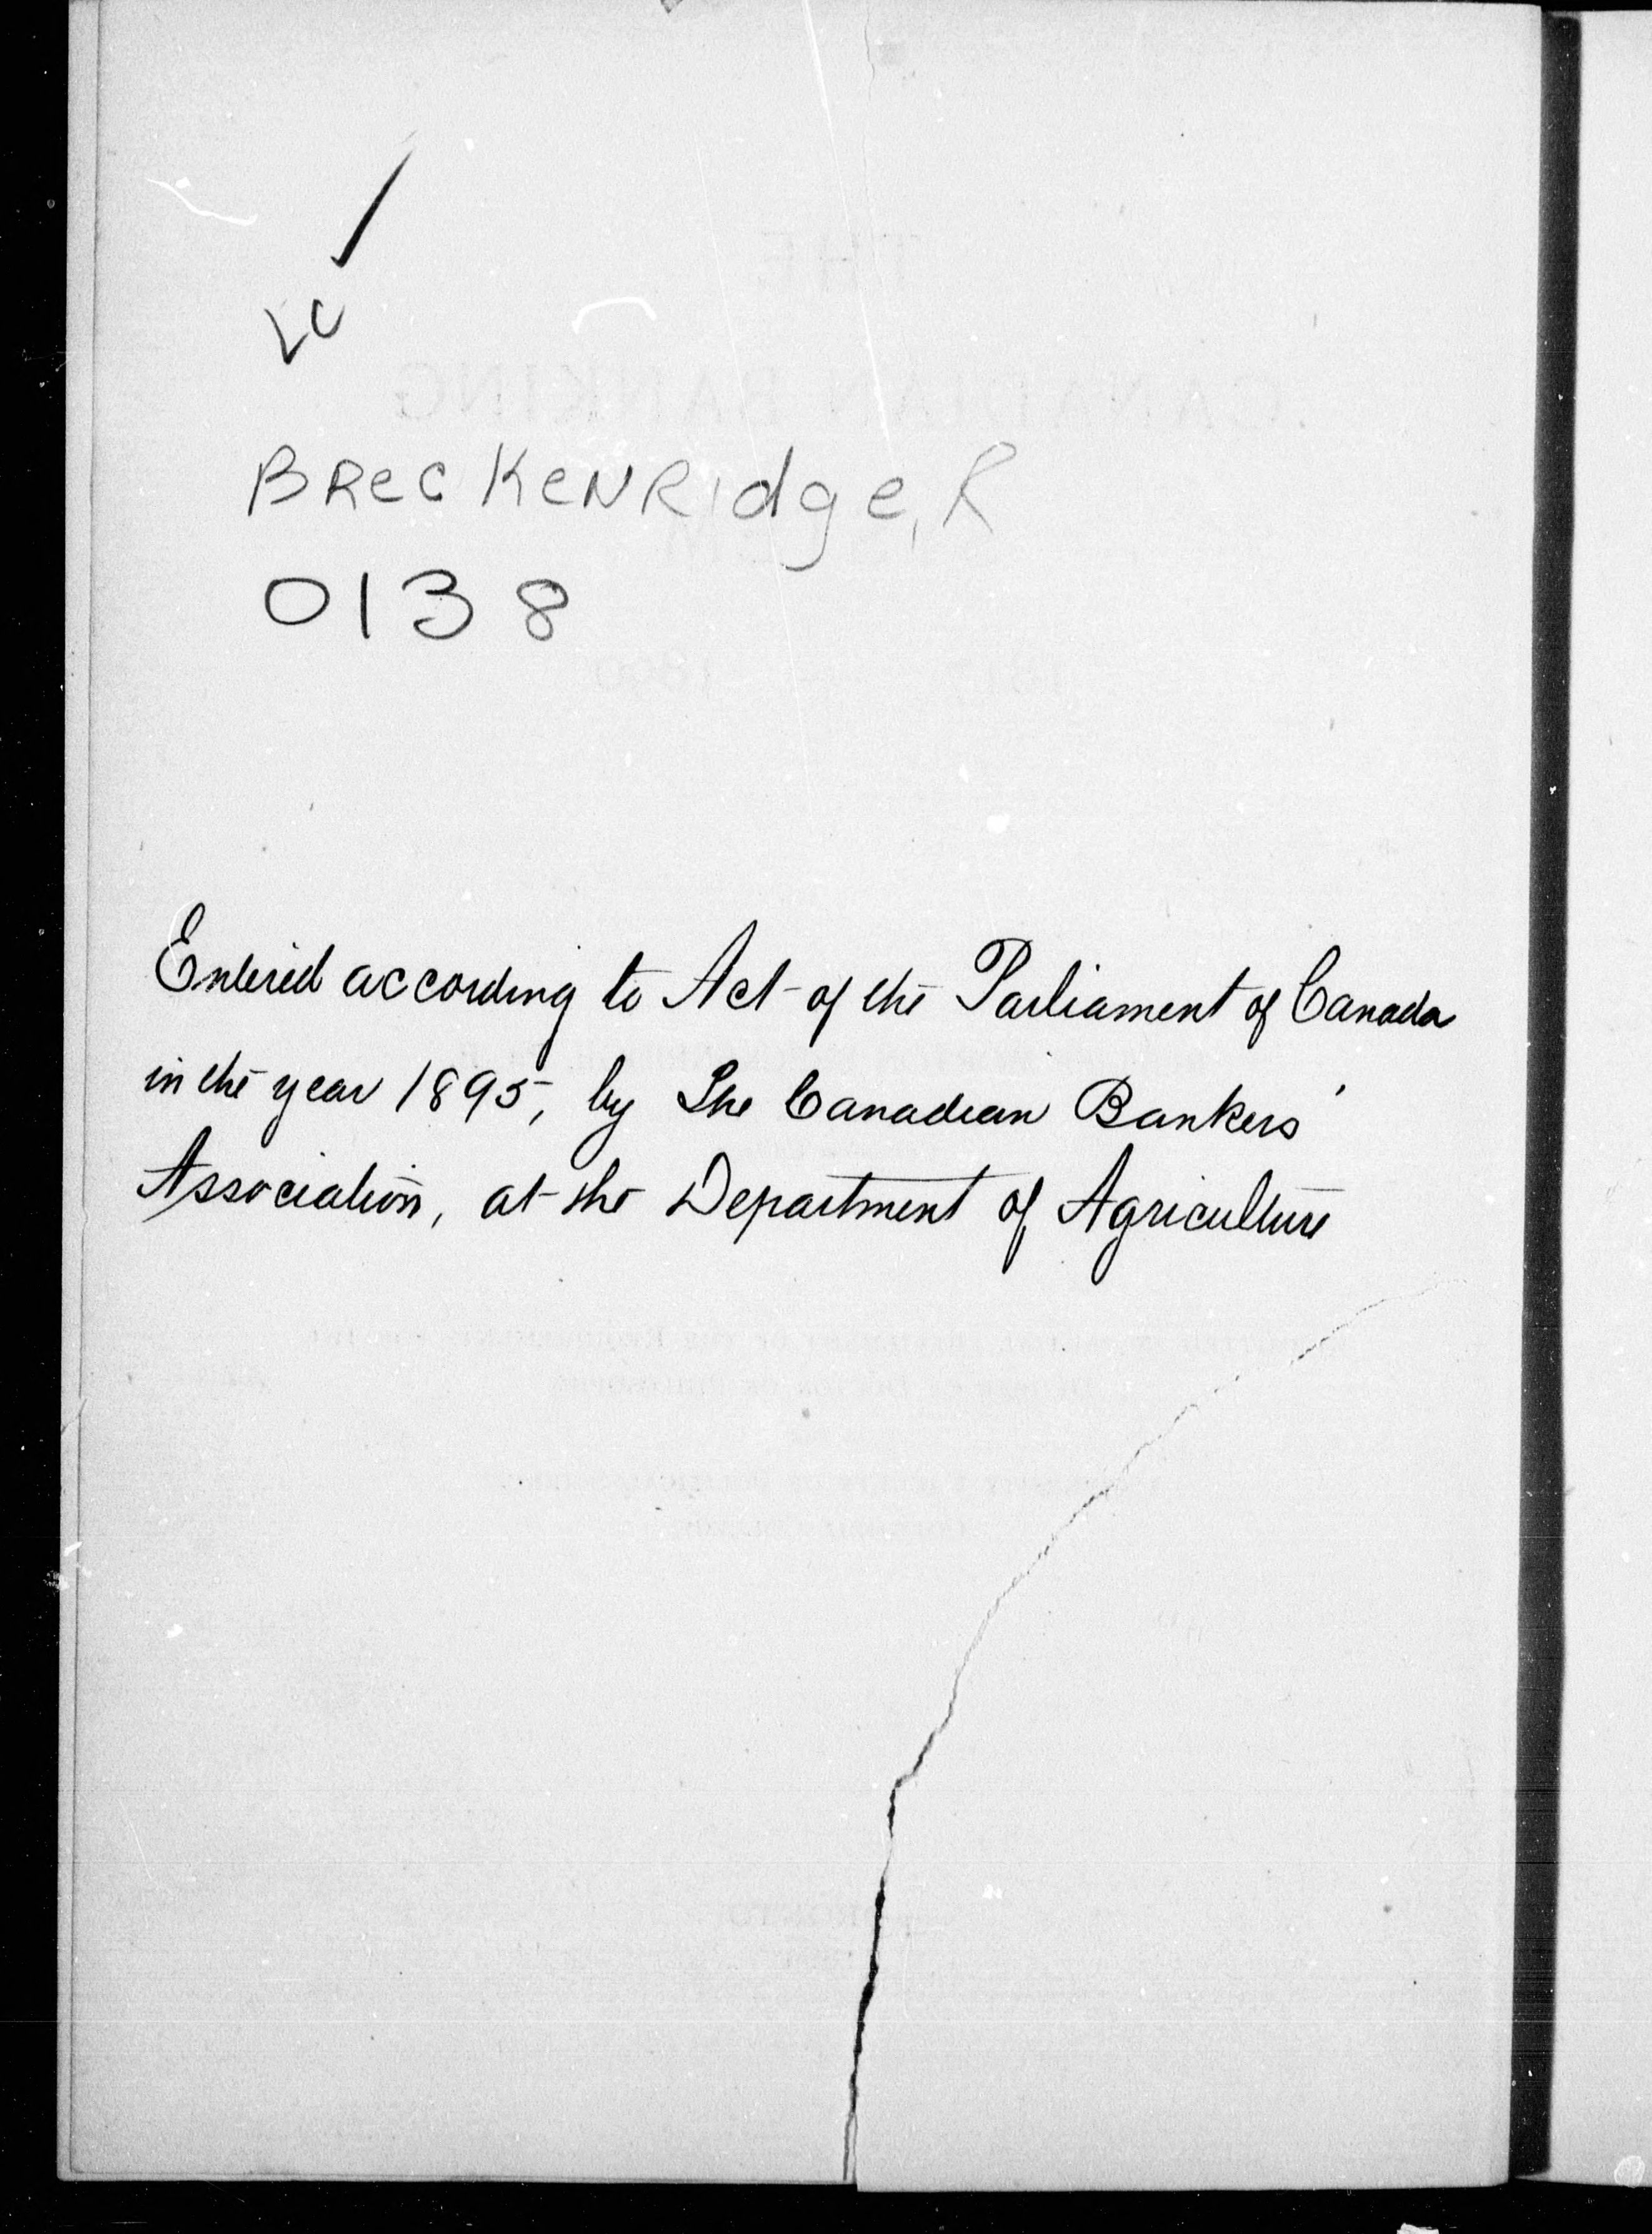 LC
BRecKeNRidge, R
0138
Entered according to Act of the Parliament of Canada
in the year 1895, by The Canadian Bankers'
Association, at the Department of Agriculture